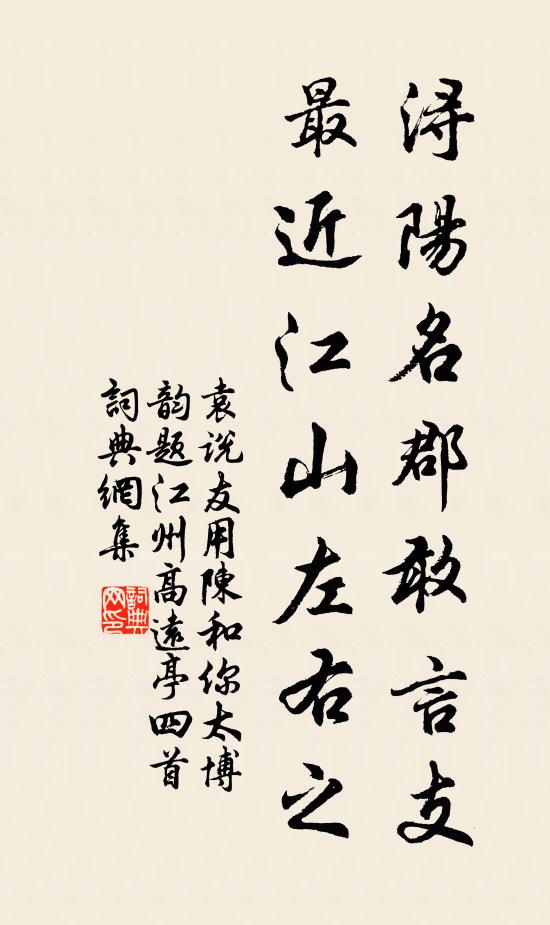 潯陽名郡敢言支
最近江山左右之
袁说友用陳和你太博
韵题江州高遠亭四首
詞典網集
詞典网印